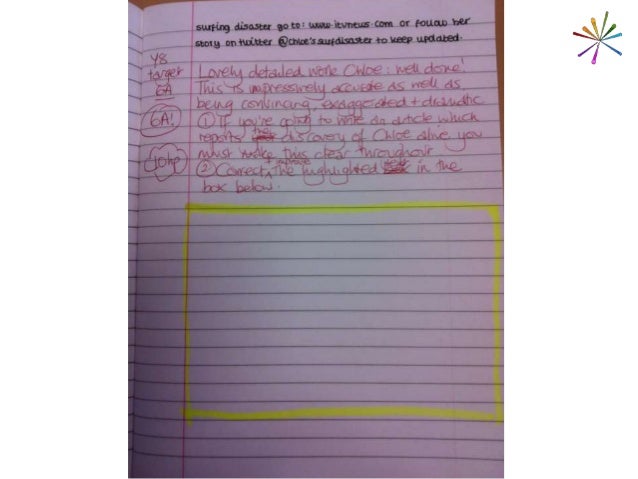 surfing disaster go to: www.itvnews.com or follow her
story on twitter @chloe'ssurfdisaster to keep updated.
Y8
target
6A
6A!
10hp
Lovely detailed work Chloe: well done!
This is impressively accurate as well as
being convincing, exaggerated + dramatic
① If you're going to write an article which
reports the discovery of Chloe alive you
must make this clear throughout
② Correct + improve the highlighted in the
box below.